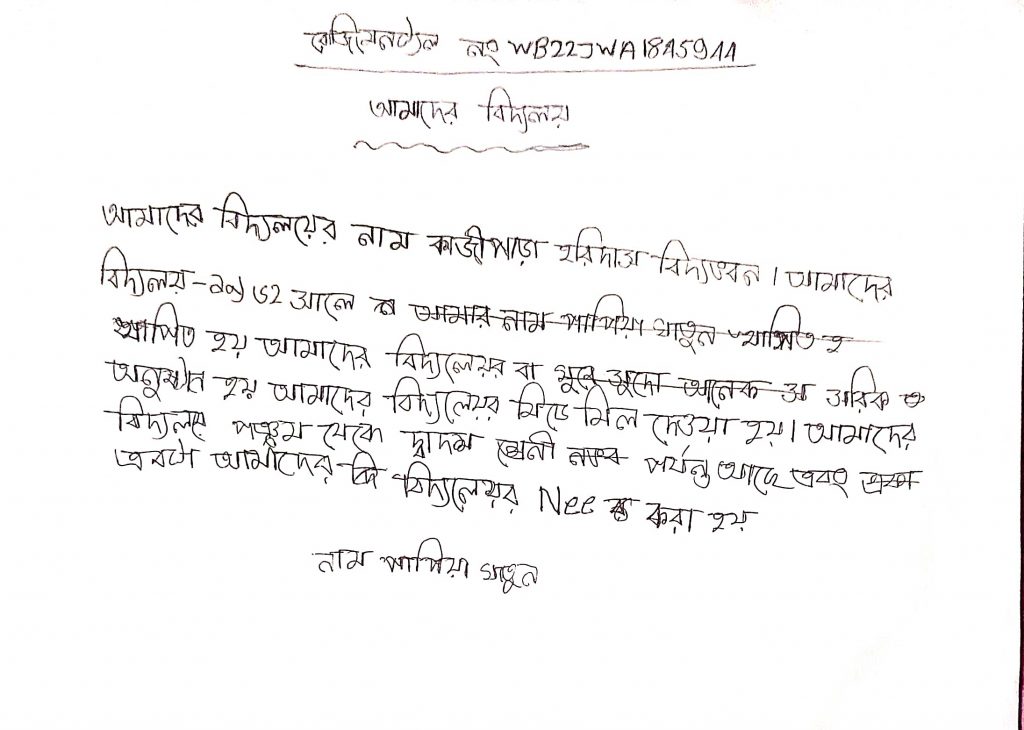 রেজিষ্টেশন নং WB22JWA1845944
আমাদের বিদ্যলয়
আমাদের বিদ্যলয়ের নাম কাজীপাড়া হরিদাস বিদ্যভবন । আমাদের
বিদ্যলয় - ১৯৬২ সালে স্থ আমার নাম পাপিয়া খাতুন স্থাপিত হ
স্থাপিত হয় আমাদের বিদ্যলেয়র বা অনেক
অনুষ্ঠান হয় আমাদের বিদ্যলেয়র মিডে মিল দেওয়া হয়। আমাদের
বিদ্যলয়ে পঞ্চম থেকে দ্বাদশ শ্রেনী পর্যন্ত আছে এবং
এবটা আমাদের বি বিদ্যলেয়র Nee করা হয়
নাম পাপিয়া খাতুন